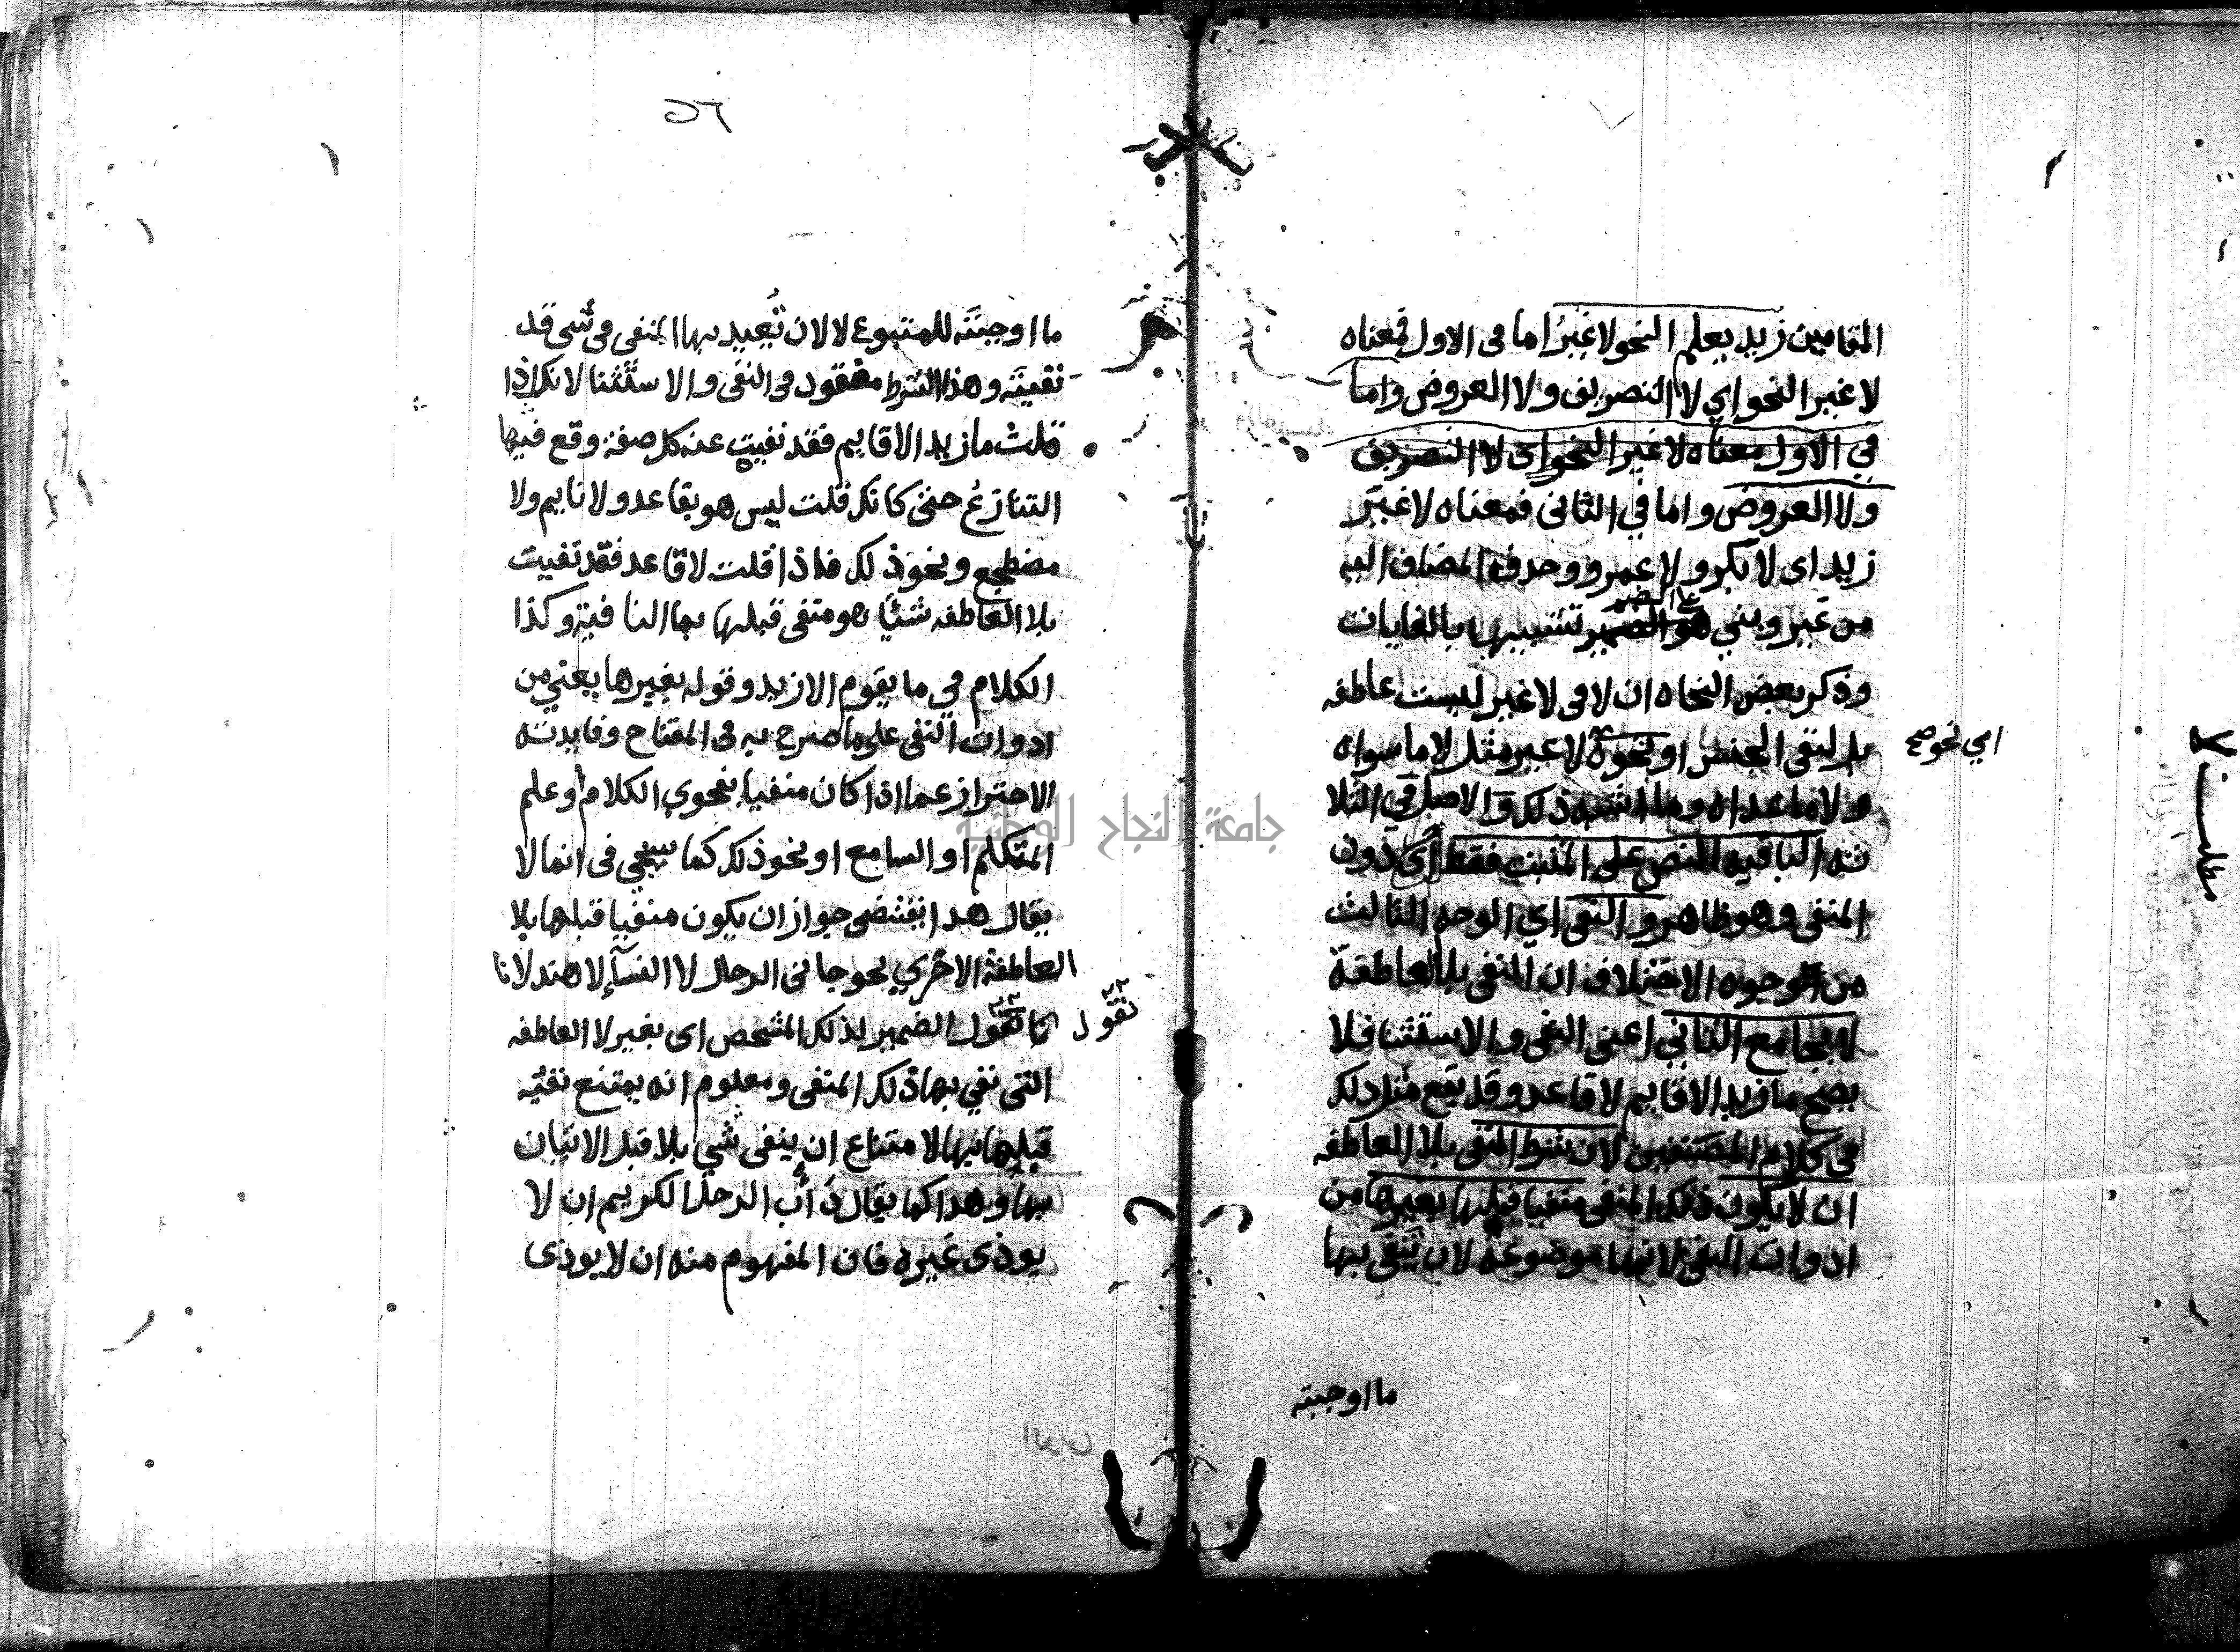 المقامين زيد يعلم النحو لا غير اما في الاول فمعناه
لا غير النحو اي لا التصريف ولا العروض واما
في الاول معناه لا غير النحو اى لا التصريف
ولا العروض واما في الثاني فمعناه لا غير
زيد اى لا بكر ولا عمرو وحدف المضاف اليه
من غير وبني هو الضمير تشبيها بالغايات
على الضم
وذكر بعض النحاه ان لا في لا غير ليست عاطفه
بل لنفى الجنس او نحوه لا غير مثل لا ما سواه
اي نحو صح
ولا ما عداه وما اشبه ذلك والاصل في الثلا
ثه الباقيه النص على المثبت فقط اى دون
المنفى وهو ظاهر والنفى اي الوجه الثالث
من الوجوه الاختلاف ان المنفى بلا العاطفة
لا يجامع الثاني اعني النفى والاستثنا فلا
يصح ما زيد الا قايم لا قاعد وقد يقع مثل دلك
في كلام المصنفين لان شرط المنفى بلا العاطفه
ان لا يكون ذلك المنفى منفيا قبلها بغيرها من
ادوات النفى لانها موضوعة لان تنفى بها
ما اوجبته
مطلب لا
٥٦
ما اوجبته للمتبوع لا لان تعيد بها المنفى في شى قد
نفيته وهذا الشرط مفقود في النفى والاستثنا لانك اذا
قلت ما زيد الا قايم فقد نفيت عنه كل صفة وقع فيها
التنازع حتى كانك قلت ليس هو بقاعد ولا نايم ولا
مضطجع ونحو ذلك فاذا قلت لا قاعد فقد نفيت
بلا العاطفه شئيا هو منفى قبلها بما النافية وكذا
الكلام في ما يقوم الا زيد وقوله بغيرها يعني من
ادوات النفى على ما صرح به في المفتاح وفايدته
الاحتراز عما اذا كان منفيا بفحوي الكلام او علم
المتكلم او السامع او نحو ذلك كما سيجي فى انما لا
يقال هدا يقتضى جواز ان يكون منفيا قبلها بلا
العاطفة الاخري نحو جانى الرجال لا النسآء لا هند لانا
نقول
نقول الضمير لذلك المشخص اى بغير لا العاطفه
التى نفي بها ذلك المنفى ومعلوم انه يمتنع نفيه
قبلها بها لامتناع ان ينفى شي بلا قبل الاتيان
بها وهدا كما يقال دأب الرجل الكريم ان لا
يوذى غيره فان المفهوم منه ان لا يوذى
جامعة النجاح الوطنية